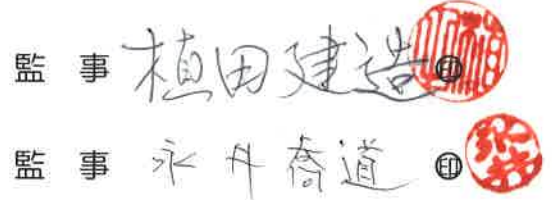 監事 植田建造 ㊞
監事 永井喬道 ㊞